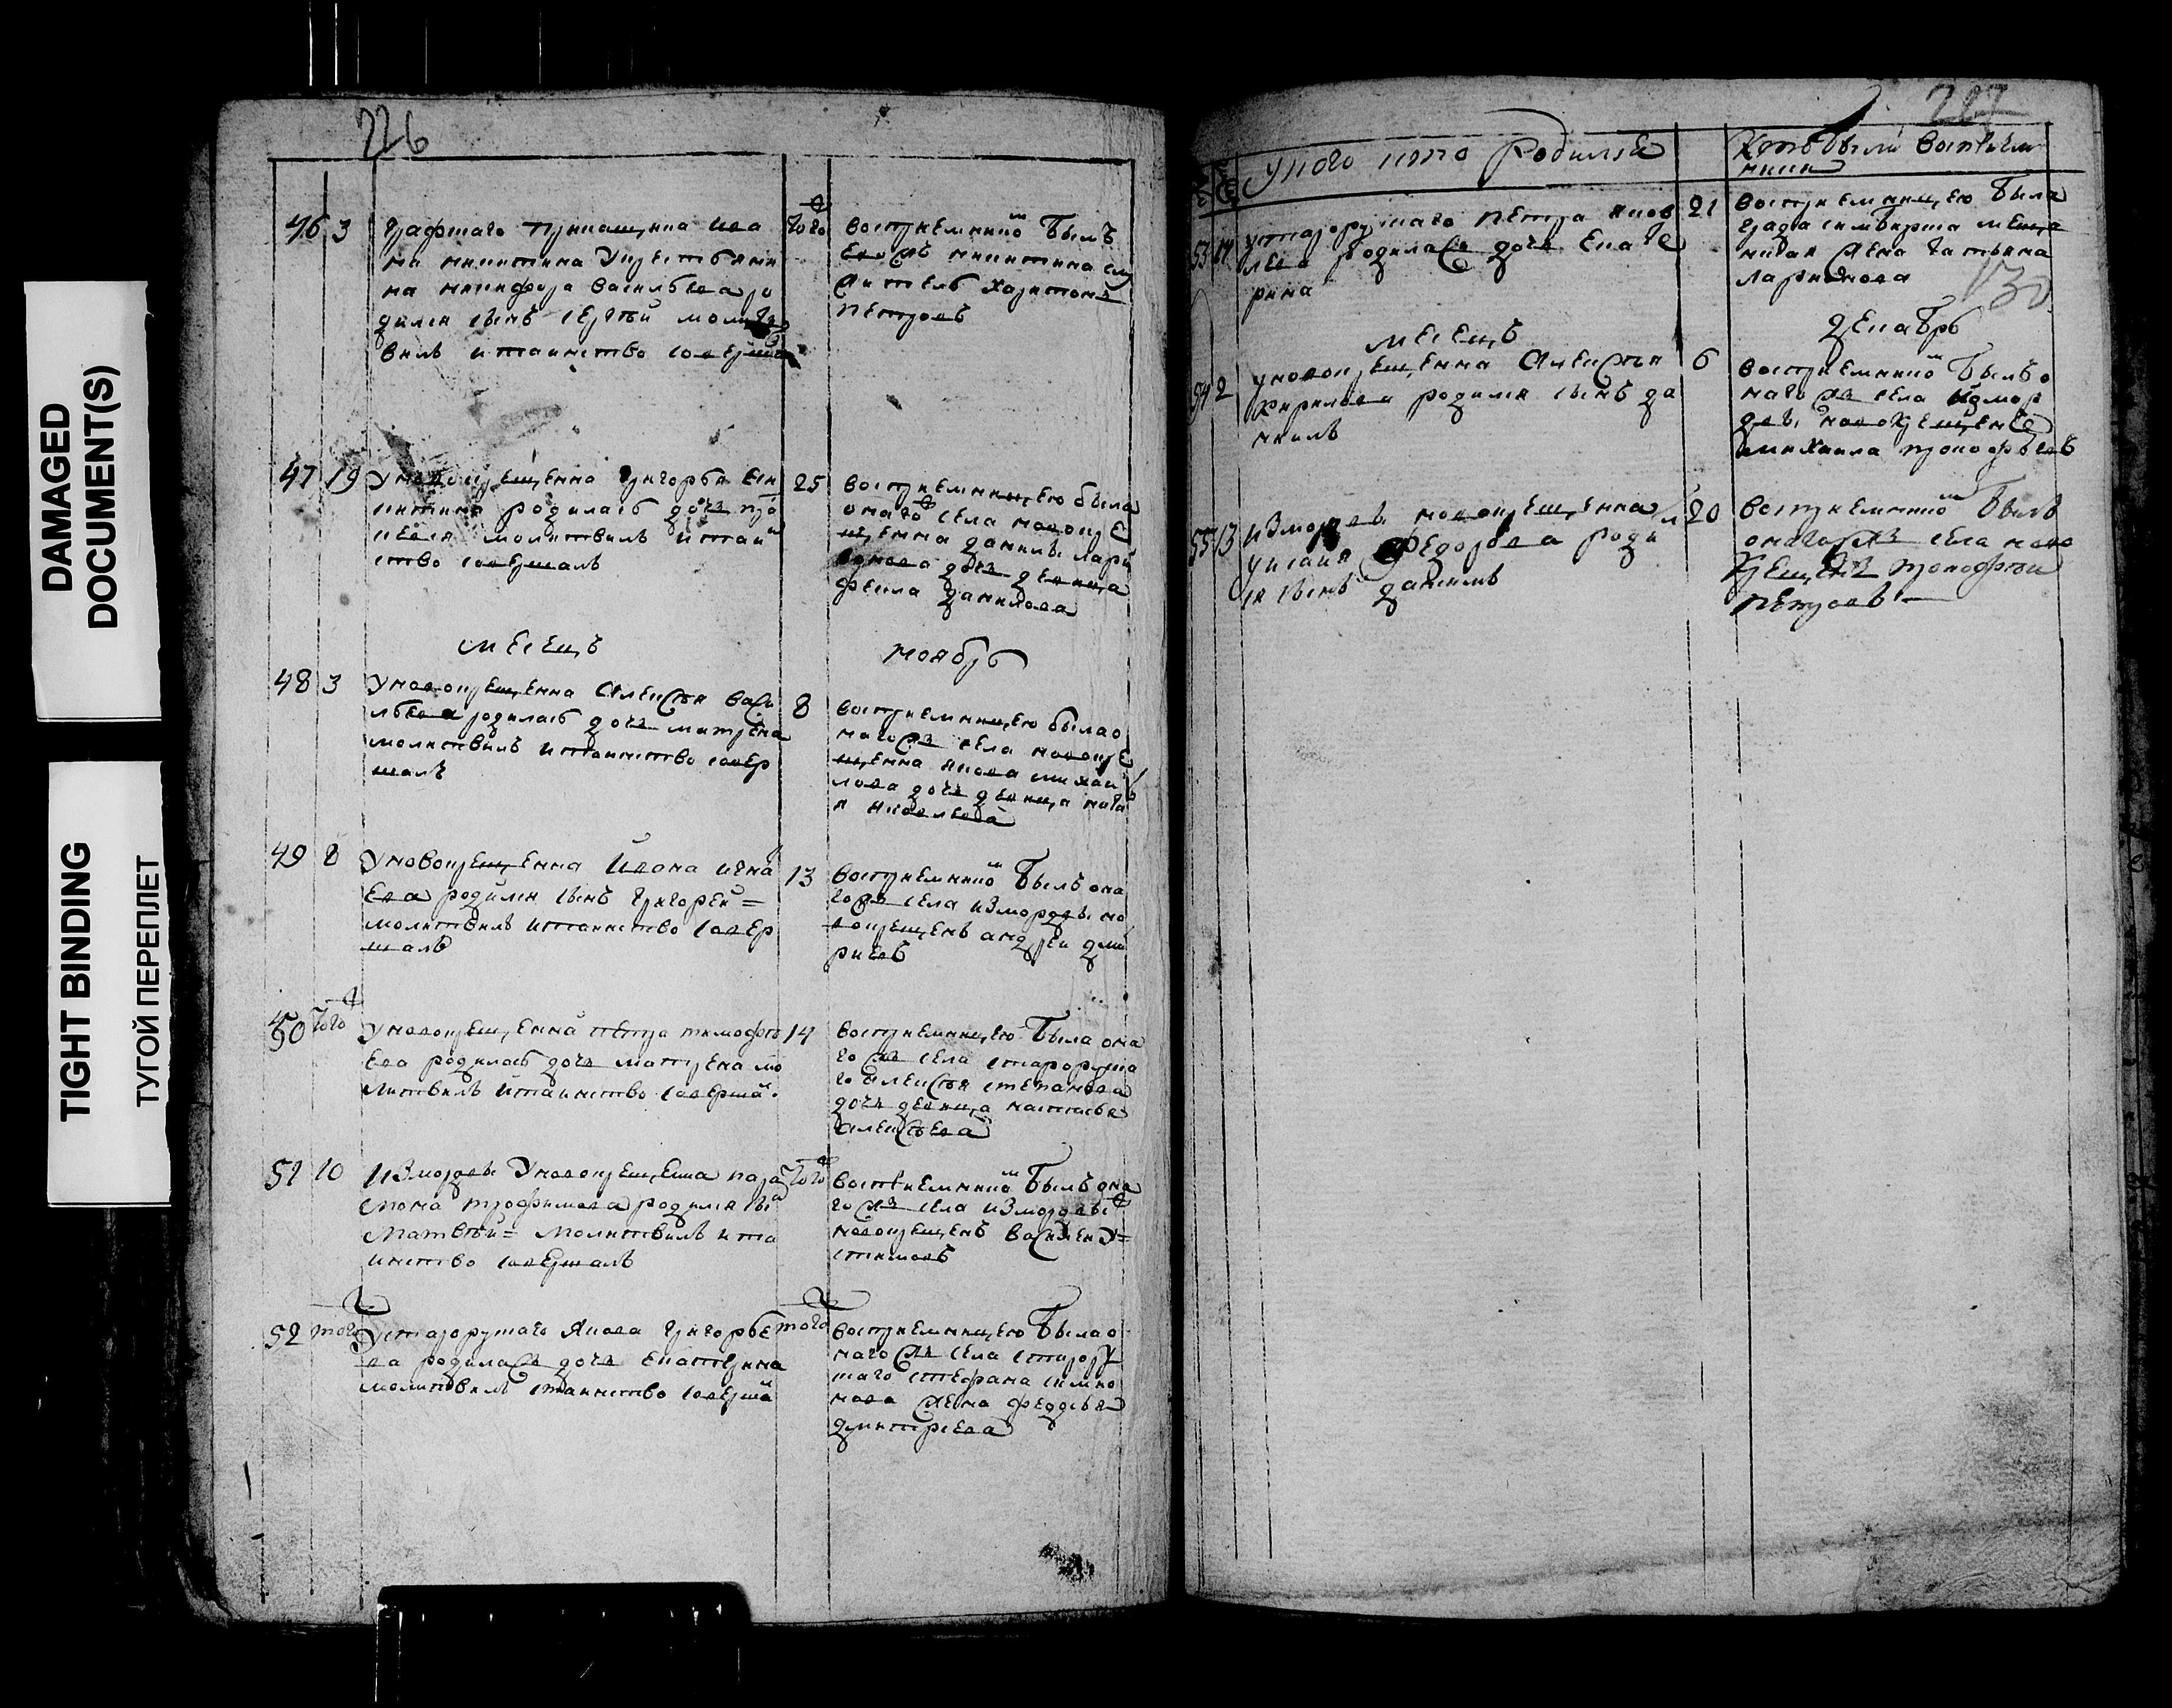 DAMAGED
DOCUMENT(S)
TIGHT BINDING
ТУГОЙ ПЕРЕПЛЕТ
226
46 3 графшаго прикащика Ива
на никитина у крестьяни
на никифора васильева ро
дился сынъ сергѣй молит
вилъ и таинство совершал
того восприемникомъ былъ
его жъ никитина слу
житель харитонъ
петровъ
47 19 У новокрещенна григорья
никитина родилась дочь
молитвилъ и таин
ство совершалъ
25 восприемницею была
оного села новокре
щенна данилы лари
онова дочь девица
фекла данилова
месецъ ноябрь
48 3 У новокрещенна Алексѣя васи
льева родилась дочь матрена
молитвилъ и таинство совер
шалъ
8 восприемницею была о
наго жъ села новокре
щенна якова михаи
лова дочь девица ната
я яковлева
49 8 У новокрещенна Ивана игна
ева родился сынъ григореи =
молитвилъ и таинство совер
шалъ
13 восприемникомъ былъ она
го жъ села измордвы но
вокрещенъ андреи дми
риевъ
50 того У новокрещенна петра тимофѣ
ева родилась дочь матрена мо
литвилъ и таинство соверша
14 восприемницею была она
го жъ села староруша
го алексѣя степанова
дочь девица настасья
алексѣева
51 10 измордвы У новокрещенна пара
мона трофимова родился сы
матвѣи = молитвилъ и та
инство совершалъ
того восприемникомъ былъ она
го жъ села измордвы
новокрещенъ василеи У=
стиновъ
52 того У старорушаго Якова григорье
ва родилась дочь екатерина
молитвилъ таинство соверша
того восприемницею была о
наго жъ села старору
шаго стефана симио
нова жена федосья
дмитриева
207
У кого кто родился
Кто были восприем
ники
53 17 У старорушаго петра яков
лева родилась дочь екате
рина
21 восприемницею была
града симбирска меща
нина жена татьяна
ларионова
130
месецъ декабрь
54 2 У новокрещенна Алексѣя
кирилова родился сынъ да
ниилъ
6 восприемникомъ былъ о
наго жъ села измор
двы новокрещенъ
михаила прокофьевъ
55 13 измордвы новокрещенна
Федорова роди
ся сынъ даниилъ
20 восприемникомъ былъ
онаго жъ села ново
крещенъ прокофеи
петровъ —